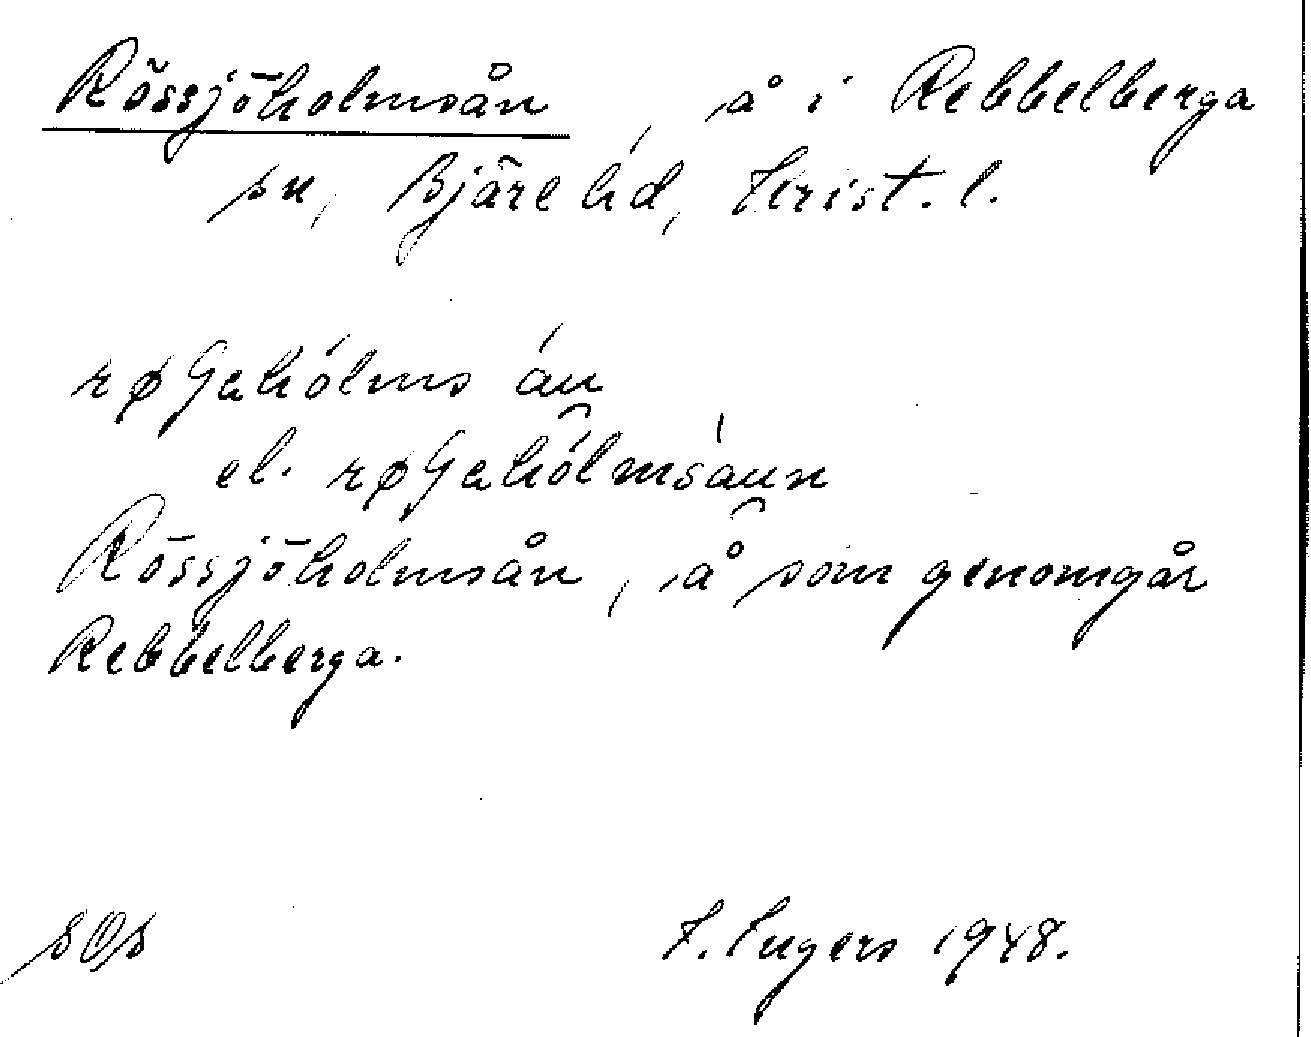 Rössjöholmsån, å i Rebbelberga
sn, Bjäre hd, Krist. l.
røGahólms án
el. røGahólmsáun
Rössjöholmsån, å som genomgår
Rebbelberga.
sOs
I. Ingers 1948.